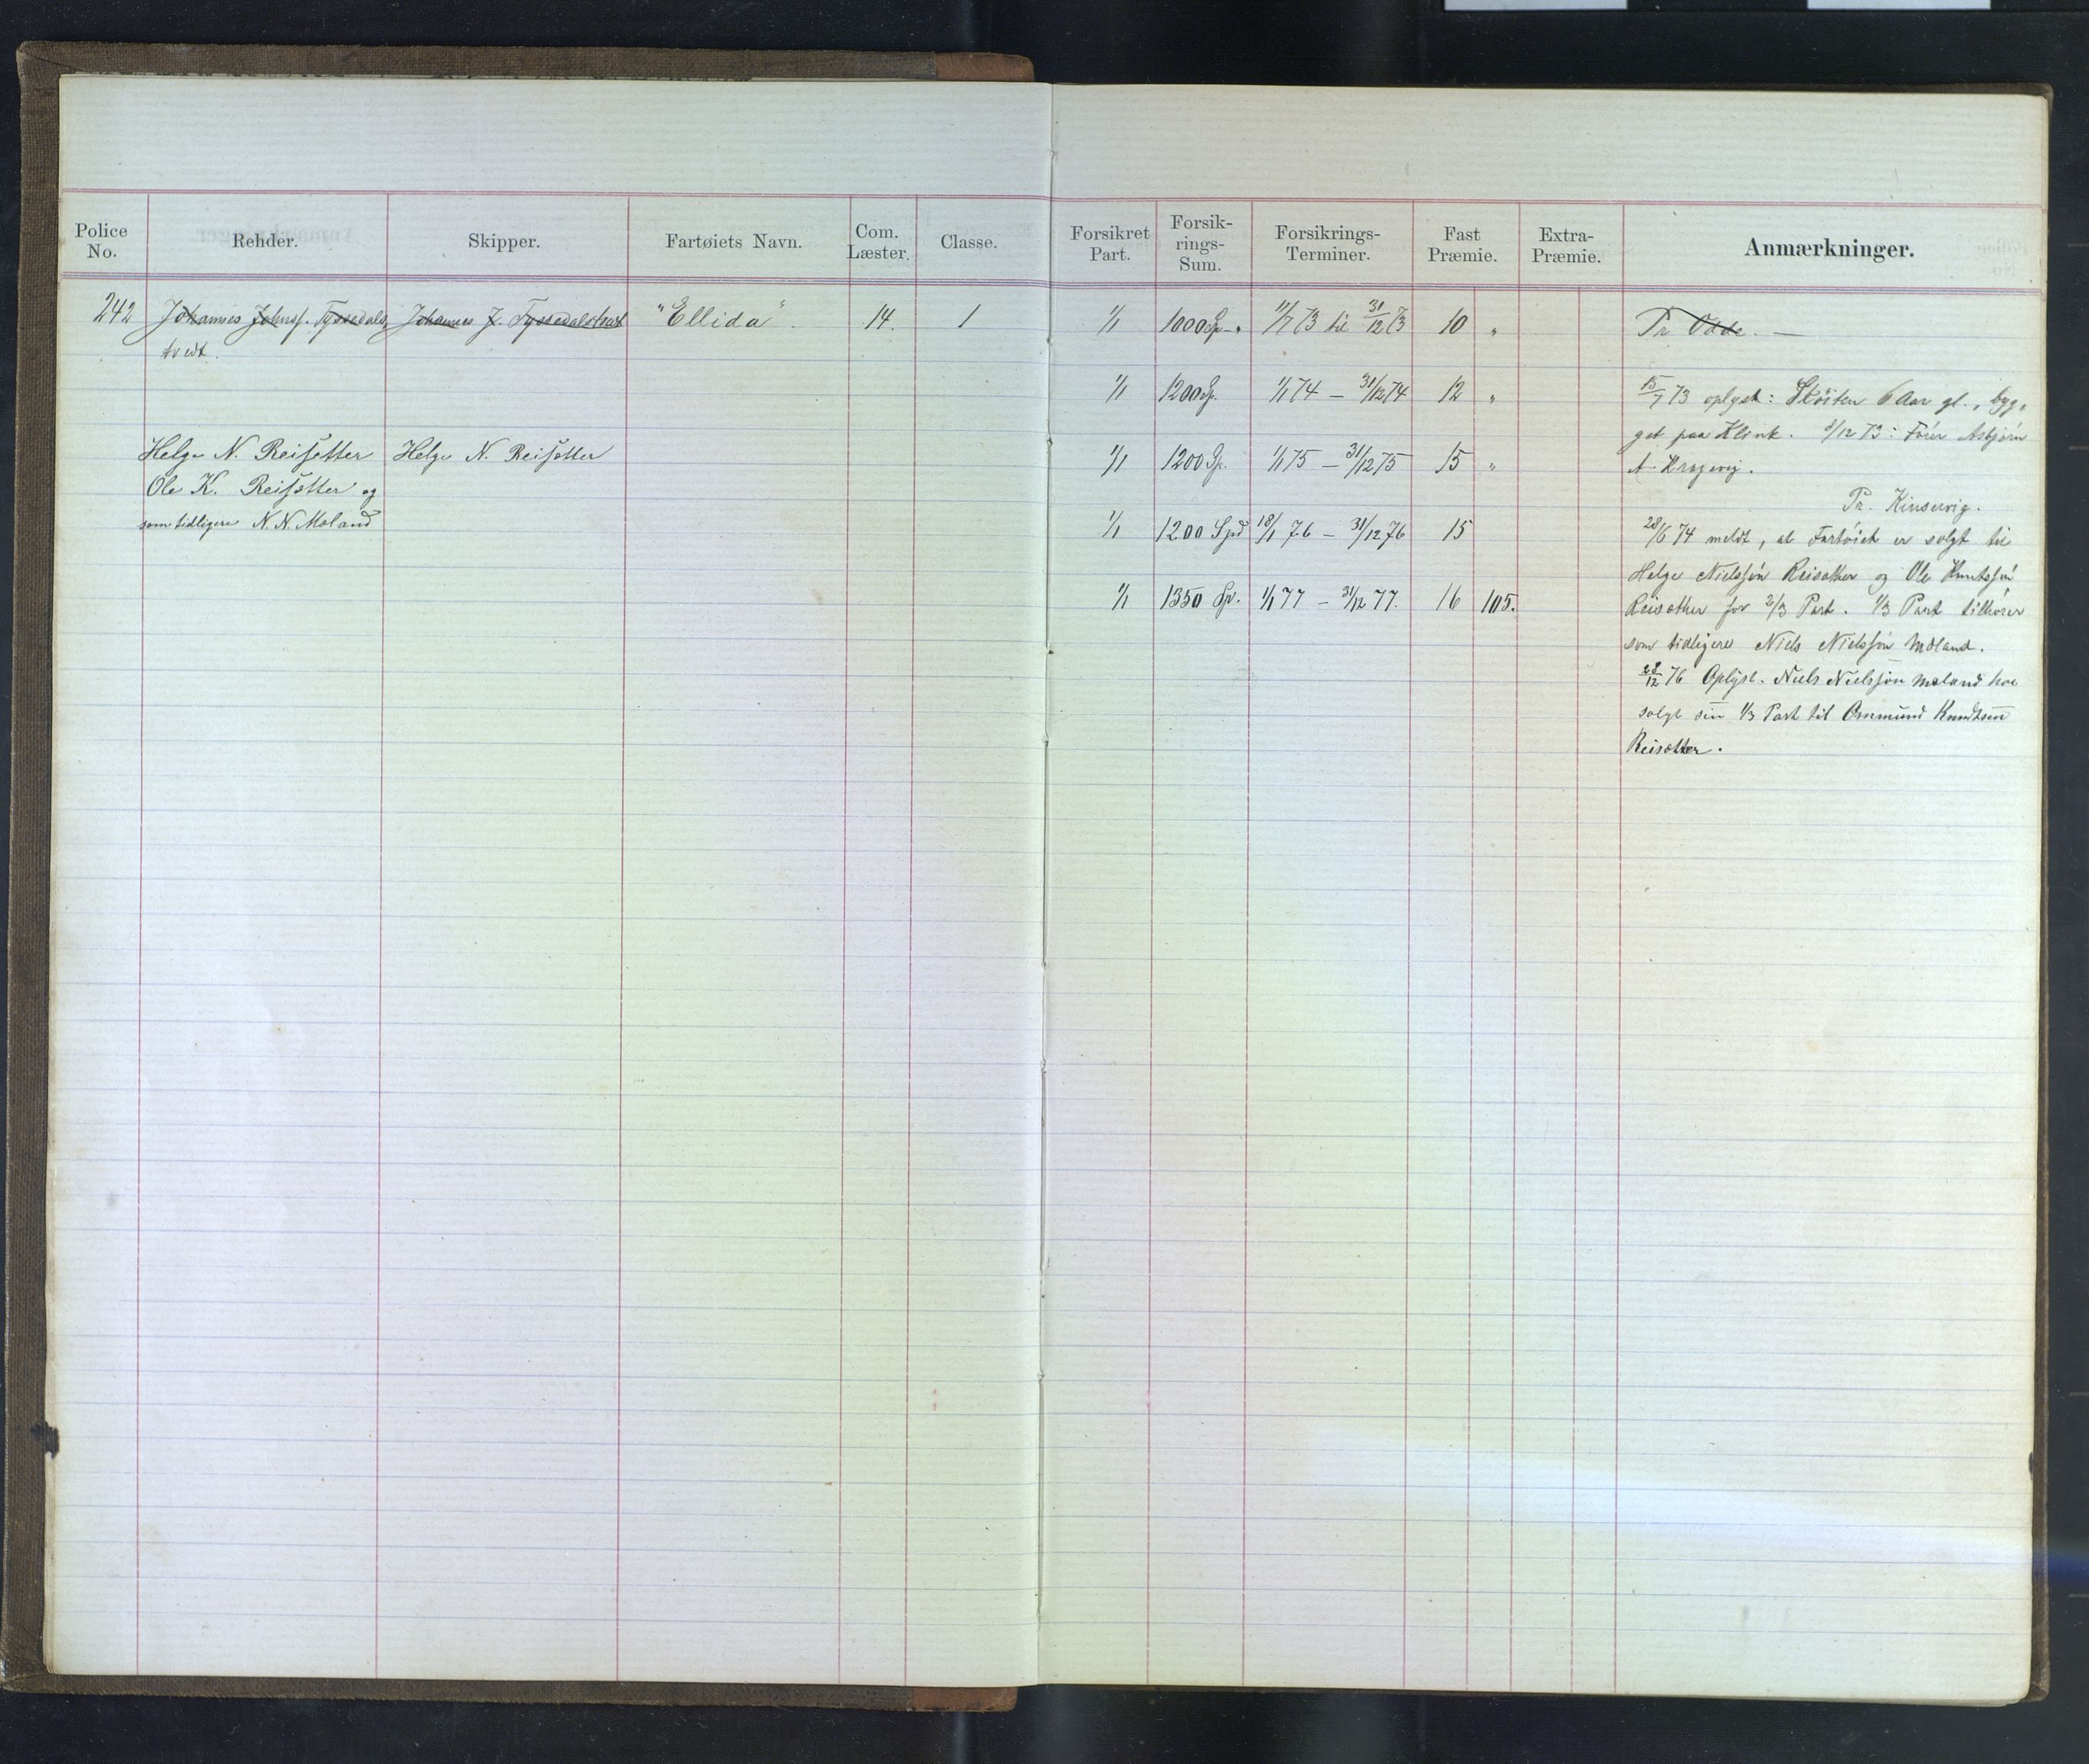 Police No.
Rehder.
Skipper.
Fartøiets Navn.
Com. Læster.
Classe.
Forsikret Part.
Forsik-rings-Sum.
Forsikrings-Terminer.
Fast Præmie.
Extra-Præmie.
Anmærkninger.
242 Johannes Johnss. Tyssedals Johannes J. Tyssedalstvedt "Ellida". 14. 1 1/1 1000 Sp. 11/7 73 til 31/12 73 10 " Pr. Odde. —
tvedt.
1/1 1200 Sp. 1/1 74 — 31/12 74 12 " 15/7 73 oplyst: Skøiten 6 Aar gl., byg-
get paa Klink. 3/12 73: Fører Asbjørn
Helge N. Reisetter Helge N. Reisetter 1/1 1200 Sp. 1/1 75 — 31/12 75 15 " A. Kragevig.
Ole K. Reisetter og
Pr. Kinservig.
som tidligere N. N. Måland 1/1 1200 Spd 18/1 76 — 31/12 76 15 28/6 74 meldt, at Fartøiet er solgt til
Helge Nielssøn Reisæther og Ole Knutssøn
1/1 1350 Sp. 1/1 77 — 31/12 77. 16 105. Reisæther for 2/3 Part. 1/3 Part tilhører
som tidligere Niels Nielssøn Måland.
28/12 76 Oplyst. Niels Nielssøn Måland har
solgt sin 1/3 Part til Ommund Knudtsen
Reisætter.